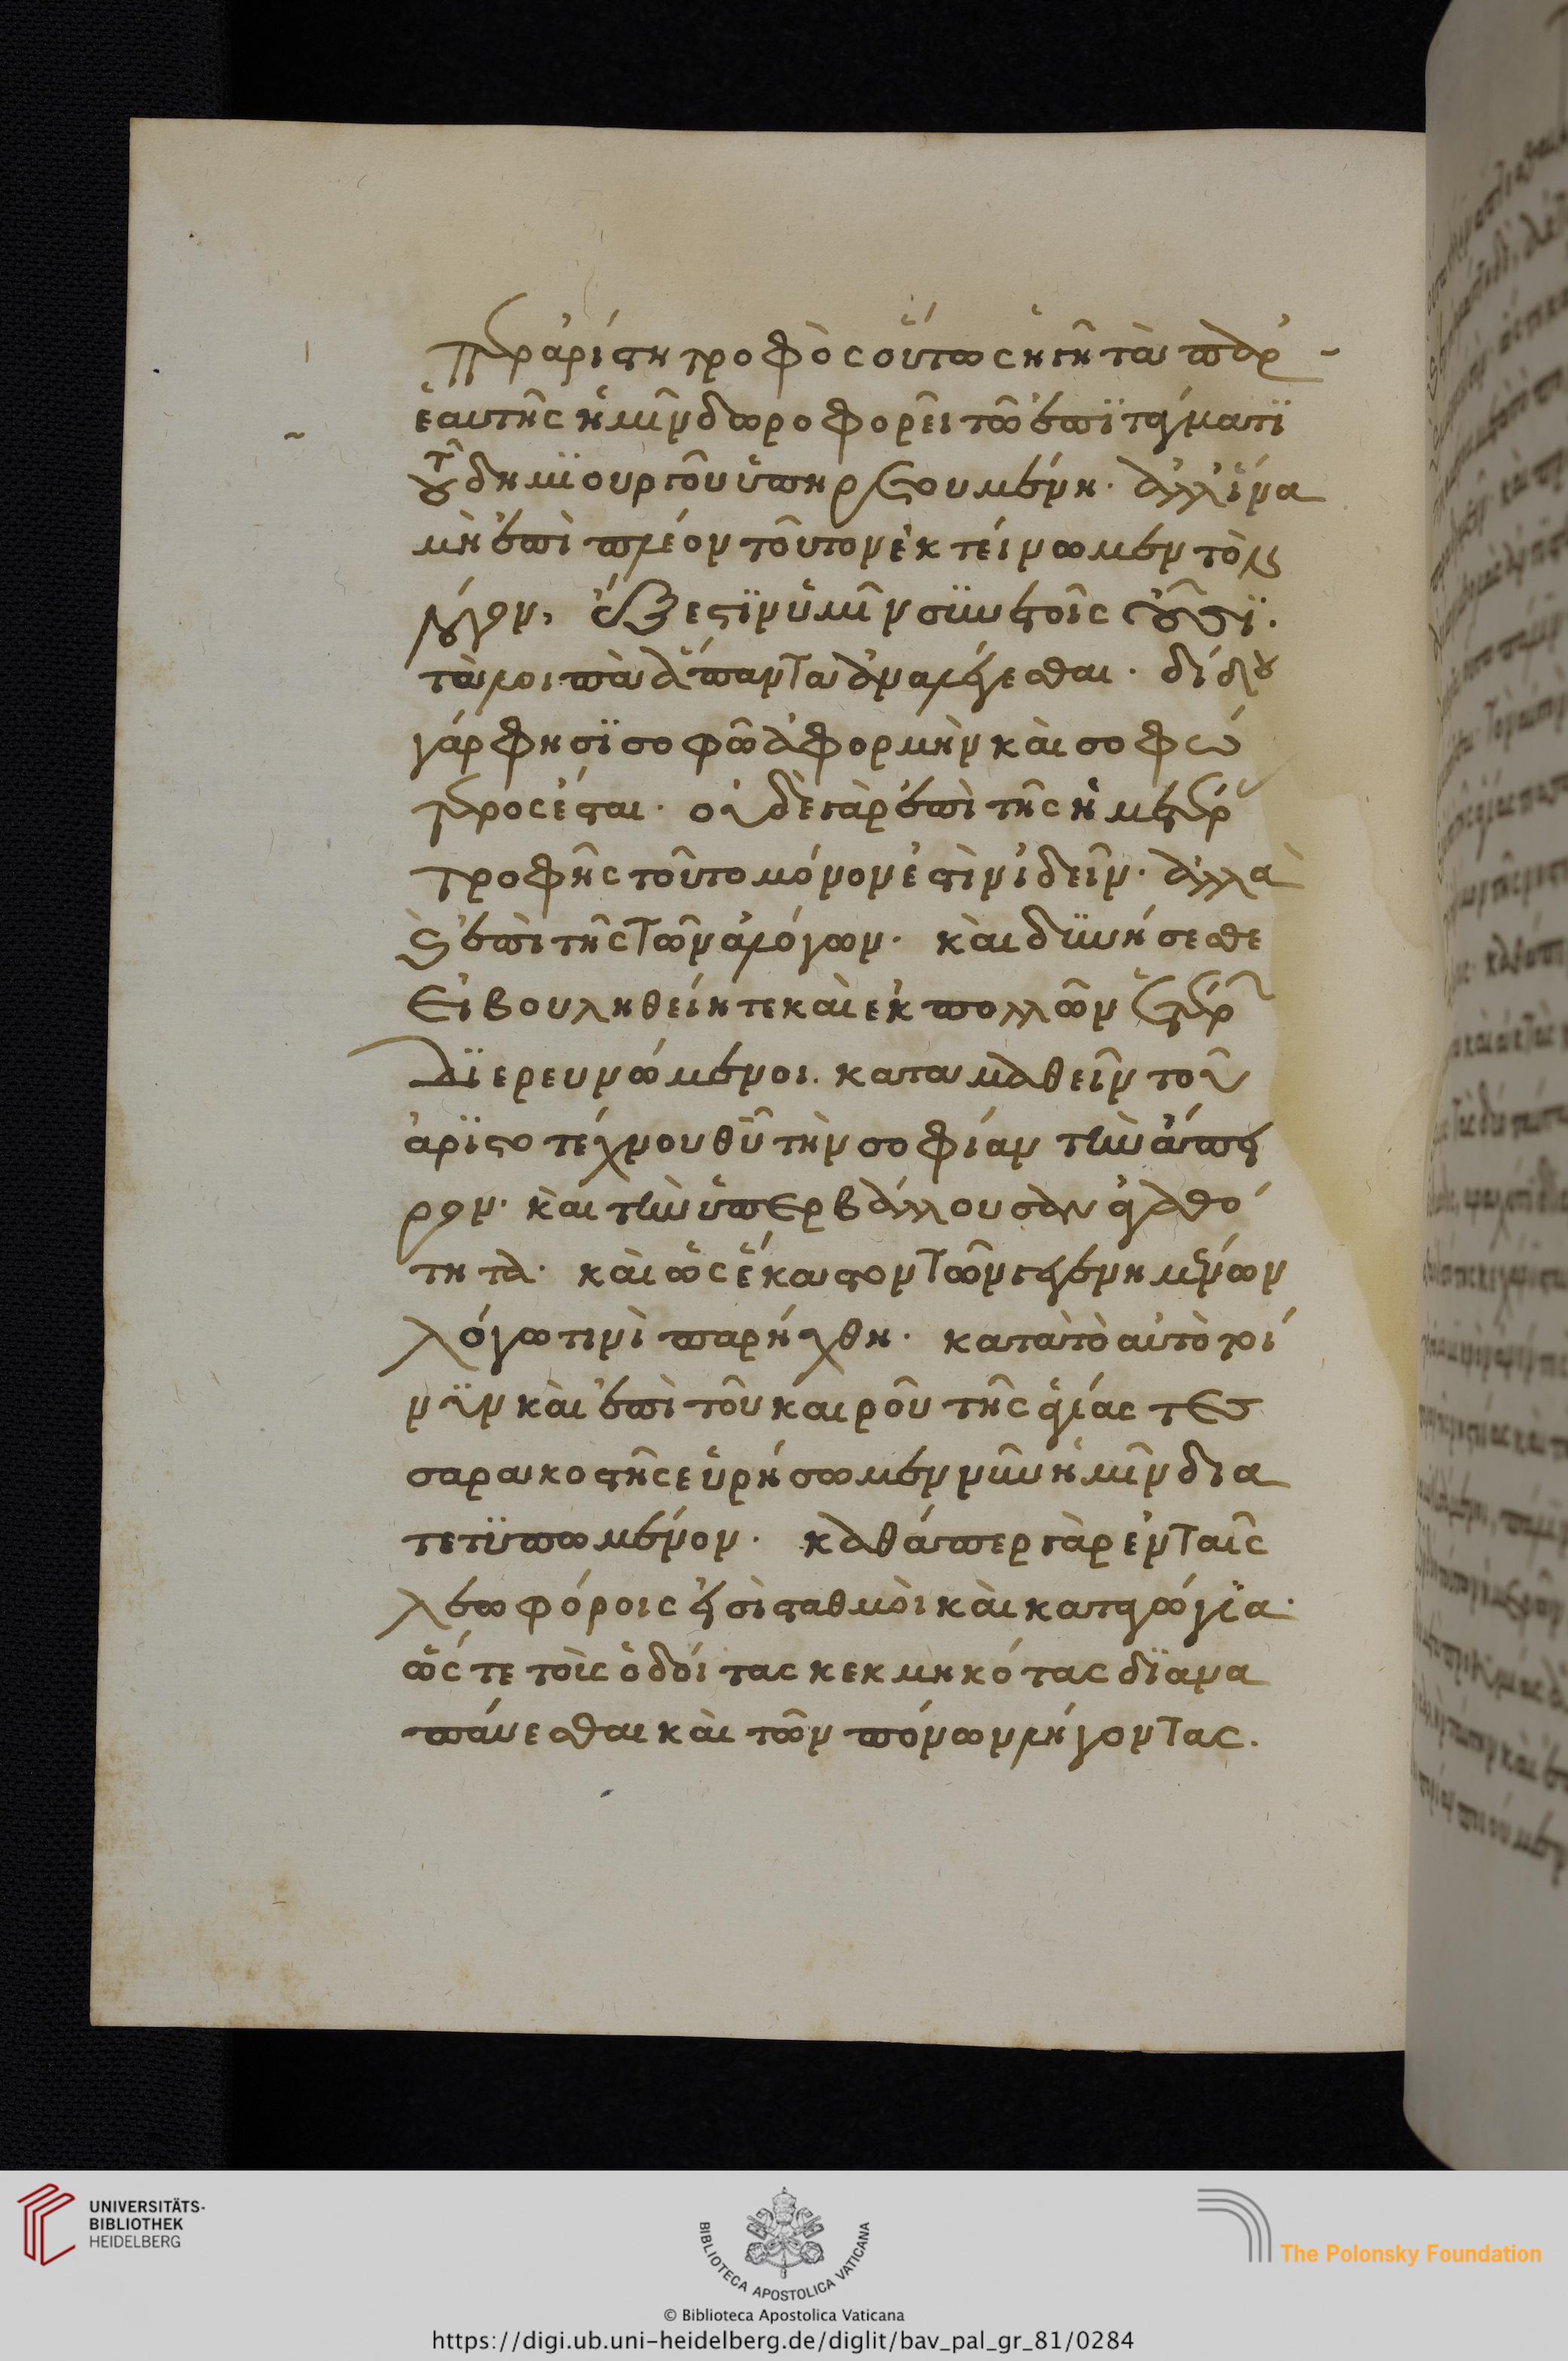 περ ἀρίστη τροφὸς οὕτως ἡ γῆ τὰ παρ
ἑαυτῆς ἡμῖν δωροφορεῖ τῶ ἐπϊτάγματϊ
τοῦ δημϊουργοῦ ὑπηρετουμένη· ἀλλ' ἵνα
μὴ ἐπὶ πλέον τοῦτον ἐκτείνωμεν τὸν
λόγον, ἔξεστϊν ὑμῖν συνετοῖς οὖσϊ.
τὰ λοιπὰ ἅπαντα ἀναλέγεσθαι· δίδου
γάρ φησϊ σοφῶ ἀφορμὴν καὶ σοφώ
τερος ἔσται· οὐδὲ γὰρ ἐπὶ τῆς ἡμετέρ
τροφῆς τοῦτο μόνον ἐστὶν ἰδεῖν· ἀλλὰ
καὶ ἐπὶ τῆς τῶν ἀλόγων· καὶ δυνήσεσθε
εἰ βουληθείητε καὶ ἐκ πολλῶν ἑτέρων
διερευνώμενοι. καταμαθεῖν τοῦ
ἀρϊστοτέχνου θῦ τὴν σοφίαν τὴν ἄπει
ρον· καὶ τὴν ὑπερβάλλουσαν ἀγαθό
τητα· καὶ ὡς ἕκαστον τῶν γεγενημένων
λόγω τινὶ παρήχθη· κατὰ τὸ αὐτὸ τοί
νϋν καὶ ἐπὶ τοῦ καιροῦ τῆς ἁγίας τεσ
σαρακοστῆς εὑρήσωμεν νῦν ἡμῖν δια
τετϋπωμένον· καθάπερ γὰρ ἐν ταῖς
λεωφόροις εἰσὶ σταθμοὶ καὶ καταγώγϊα·
ὥς τε τοὺς ὁδοίτας κεκμηκότας δϊανα
πάυεσθαι καὶ τῶν πόνων λήγοντας.
UNIVERSITÄTS-
BIBLIOTHEK
HEIDELBERG
BIBLIOTECA APOSTOLICA VATICANA
The Polonsky Foundation
© Biblioteca Apostolica Vaticana
https://digi.ub.uni-heidelberg.de/diglit/bav_pal_gr_81/0284